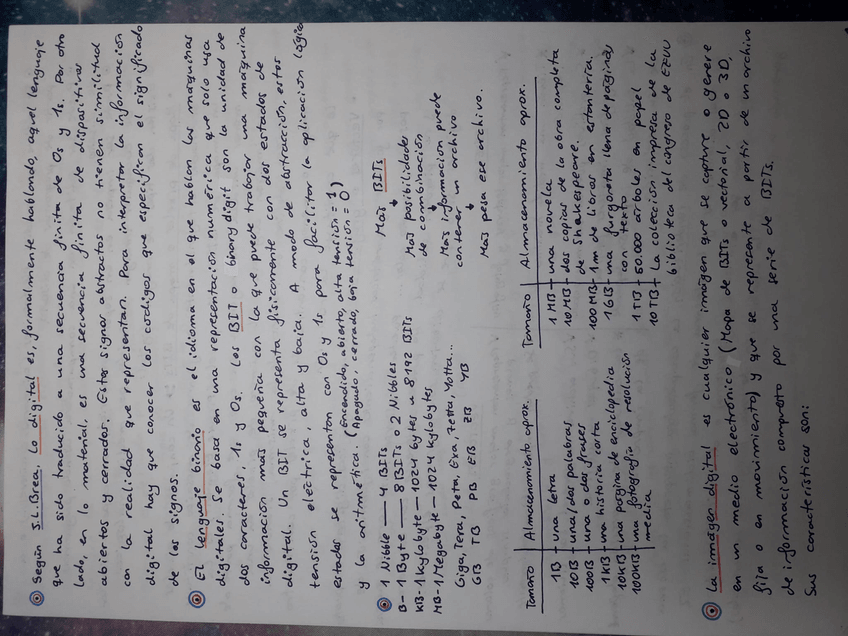 Según J.L.Brea, lo digital es, formalmente hablando, aquel lenguaje
que ha sido traducido a una secuencia finita de 0s y 1s. Por otro
lado, en lo material, es una secuencia finita de dispositivos
abiertos y cerrados. Estos signos abstractos no tienen similitud
con la realidad que representan. Para interpretar la información
digital hay que conocer los códigos que especifican el significado
de los signos.
El lenguaje binario es el idioma en el que hablan las máquinas
digitales. Se basa en una representación numérica que solo usa
dos caracteres, 1s y 0s. Los BIT o binary digit son la unidad de
información más pequeña con la que puede trabajar una máquina
digital. Un BIT se representa físicamente con dos estados de
tensión eléctrica, alta y baja. A modo de abstracción, estos
estados se representan con 0s y 1s para facilitar la aplicación lógica
y la aritmética. (Encendido, abierto, alta tensión = 1)
(Apagado, cerrado, baja tensión = 0)
1 Nibble — 4 BITs
B- 1 Byte — 8 BITs o 2 Nibbles
KB- 1 Kylobyte - 1024 bytes u 8192 BITs
MB- 1 Megabyte - 1024 kylobytes
Giga, Tera, Peta, Exa, Zetta, Yotta...
GB TB PB EB ZB YB
Más BITs
Más posibilidades
de combinación
Más información puede
contener un archivo
Más pesa ese archivo.
Tamaño Almacenamiento aprox.
1B - una letra
10B - una/dos palabras
100B - una o dos frases
1KB - una historia corta
10KB - una página de enciclopedia
100KB - una fotografía de resolución
media
Tamaño Almacenamiento aprox.
1 MB - una novela
10 MB - dos copias de la obra completa
de Shakespeare.
100 MB - 1 m de libros en estantería.
1 GB - una furgoneta llena de páginas
con texto
1 TB - 50.000 árboles en papel
10 TB - La colección impresa de la
biblioteca del congreso de EEUU
La imágen digital es cualquier imágen que se capture o genere
en un medio electrónico (Mapa de BITs o vectorial, 2D o 3D,
fija o en movimiento) y que se represente a partir de un archivo
de información compuesto por una serie de BITs.
Sus características son: